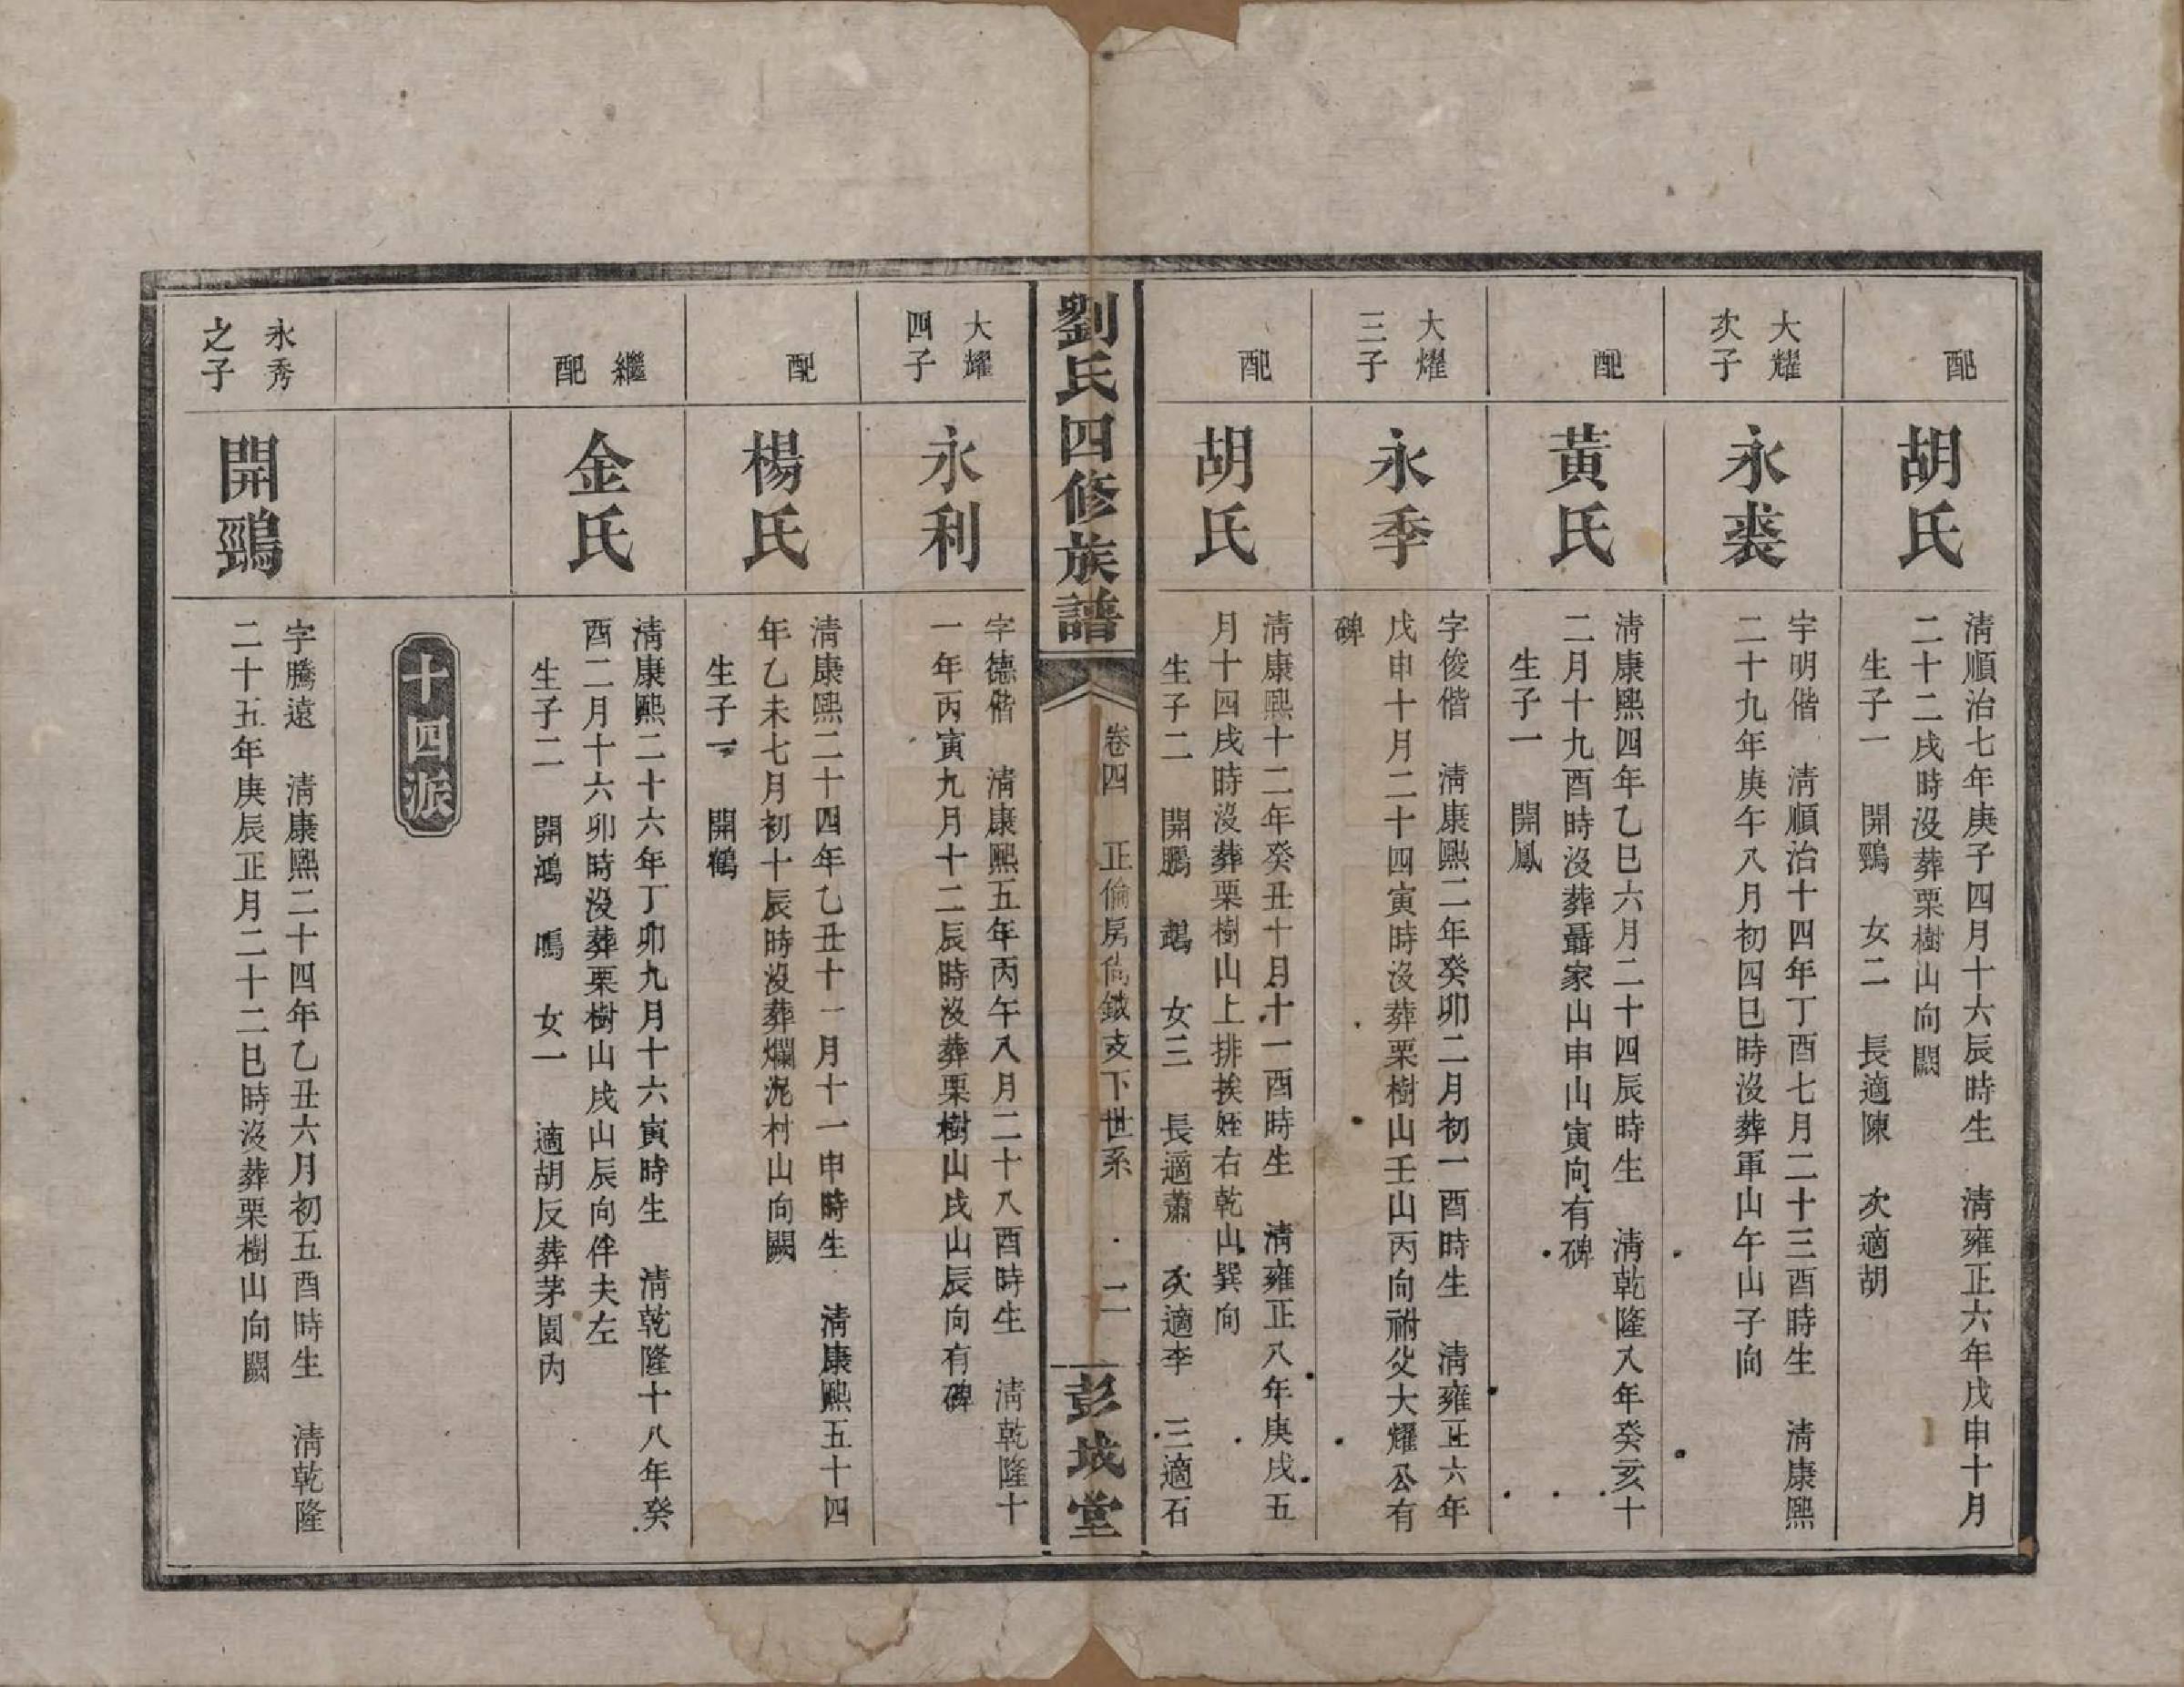 配
胡氏
清順治七年庚子四月十六辰時生　清雍正六年戊申十月
二十二戌時沒葬栗樹山向闕
生子一　開鵛　女二　長適陳　次適胡
大耀
次子
永裘
字明偕　清順治十四年丁酉七月二十三酉時生　清康熙
二十九年庚午八月初四巳時沒葬軍山午山子向
配
黃氏
清康熙四年乙巳六月二十四辰時生　清乾隆八年癸亥十
二月十九酉時沒葬聶家山申山寅向有碑
生子一　開鳳
大耀
三子
永季
字俊偕　清康熙二年癸卯二月初一酉時生　清雍正六年
戊申十月二十四寅時沒葬栗樹山壬山丙向祔父大耀公有
碑
配
胡氏
清康熙十二年癸丑十月十一酉時生　清雍正八年庚戌五
月十四戌時沒葬栗樹山上排挨姪右乾山巽向
生子二　開鵬　　女三　長適蕭　次適李　三適石
劉氏四修族譜
卷四　正倫房儁鐵支下世系　二
彭城堂
大耀
四子
永利
字德偕　清康熙五年丙午八月二十八酉時生　清乾隆十
一年丙寅九月十二辰時沒葬栗樹山戌山辰向有碑
配
楊氏
清康熙二十四年乙丑十一月十一申時生　清康熙五十四
年乙未七月初十辰時沒葬爛泥村山向闕
生子一　開鶴
繼
配
金氏
清康熙二十六年丁卯九月十六寅時生　清乾隆十八年癸
酉二月十六卯時沒葬栗樹山戌山辰向伴夫左
生子二　開鴻　鳴　女一　適胡反葬茅園內
十四派
永秀
之子
開鵛
字騰遠　清康熙二十四年乙丑六月初五酉時生　清乾隆
二十五年庚辰正月二十二巳時沒葬栗樹山向闕